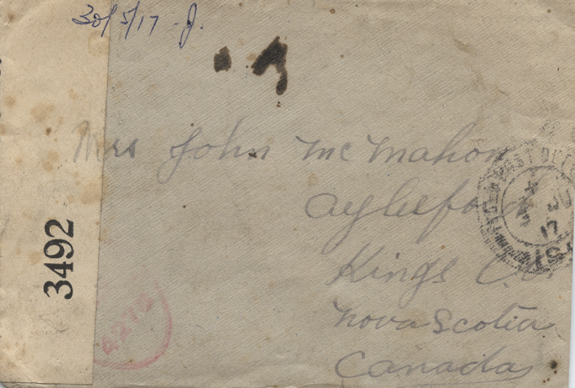 30/5/17 - J.
Mrs John McMahon
Aylesford
Kings Co
Nova Scotia
Canada
3492
POST OFFICE
17